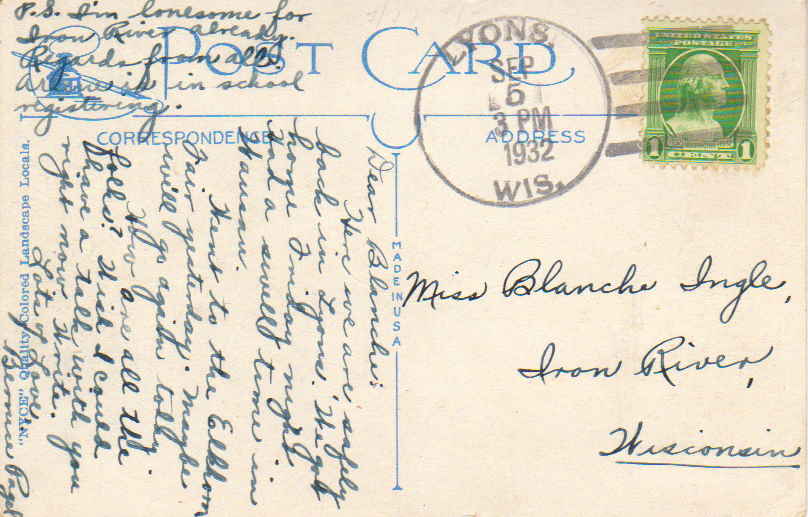 P.S. I'm lonesome for
Iron River already.
Regards from all.
is in school
registering.
POST CARD
CORRESPONDENCE
ADDRESS
LYONS,
SEP
5
3 PM
1932
WIS.
UNITED STATES
POSTAGE
1 CENT 1
Dear Blanche:
Here we are safely
back in Lyons. We got
home Friday night
had a swell time in
Wausau.
Went to the Elkhorn
Fair yesterday. Maybe
will go again today
How are all the
folks? Wish I could
have a talk with you
right now. Write.
Lots of Love,
Bernice
"NYCE" Quality Colored Landscape Locals.
MADE IN USA
Miss Blanche Ingle,
Iron River,
Wisconsin